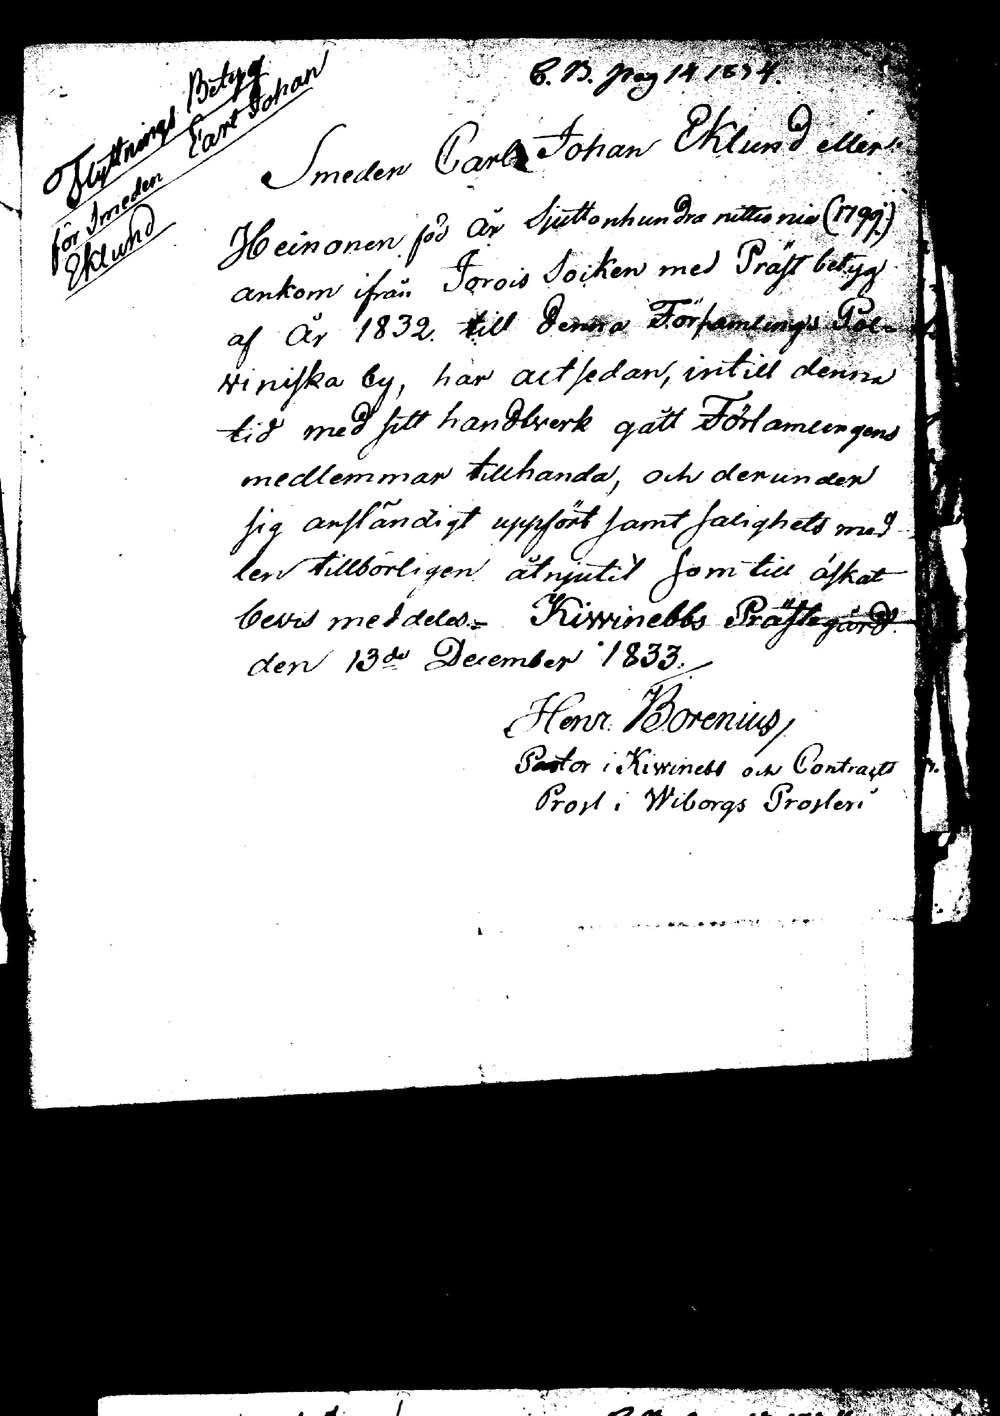 Flyttnings Betyg
för Smeden Carl Johan
Eklund
C. B. pag 14 1834.
Smeden Carl Johan Eklund eller
Heinonen föd År Sjuttonhundra nittionio (1799.)
ankom ifrån Jorois Socken med Präst betyg
af År 1832. till denna Församlings Pol-
winiska by, har altsedan, intill denna
tid med sitt handtverk gått Församlingens
medlemmar tillhanda, och derunder
sig anständigt uppfört samt salighets med-
len tillbörligen åtnjutit som till äskat
bevis meddelas. Kivinebbs Prästegård
den 13de December 1833.
Henr. Borenius
Pastor i Kivinebb och Contracts
Prost i Wiborgs Prosteri